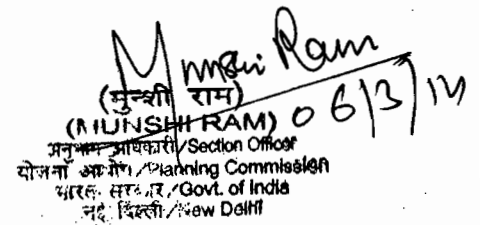 Munshi Ram
06/3/14
(मुन्शी राम)
(MUNSHI RAM)
अनुभाग अधिकारी/Section Officer
योजना आयोग/Planning Commission
भारत सरकार/Govt. of India
नई दिल्ली/New Delhi